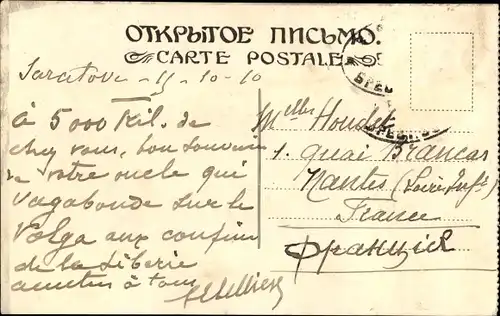 ОТКРЫТОЕ ПИСЬМО.
CARTE POSTALE
Saratow - 15-10-10
à 5000 Kil. de
chez vous, bon souvenir
de votre oncle qui
vagabonde sur le
Volga aux confins
de la Siberie
amitiés à tous
Melles Houdet
1. quai Brancas
Nantes (Loire Infre)
France
Франція
БРЕС